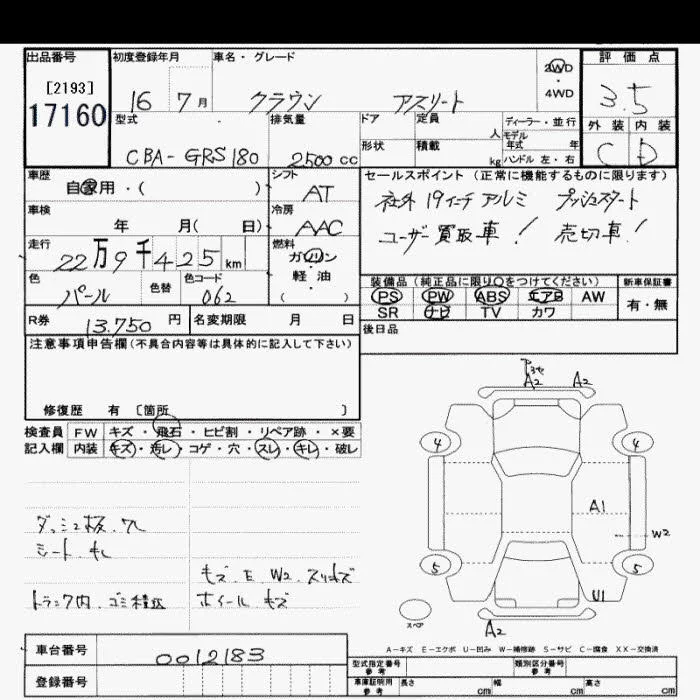 出品番号 初度登録年月 車名・グレード 評価点
[2193] 2WD
17160 16 7月 クラウン アスリート 4WD 3.5
型式 排気量 ドア 定員 人 ディーラー・並行 外装 内装
モデル年式 年
CBA-GRS180 2500cc 形状 積載 kg ハンドル 左・右 C D
車歴 シフト セールスポイント(正常に機能するものに限ります)
自家用・( ) AT 社外19インチアルミ プッシュスタート
車検 冷房
年 月( 日) AAC ユーザー買取車! 売切車!
走行 燃料
22万9千425km ガソリン
装備品(純正品に限り○をつけてください) 新車保証書
色 色替 色コード 軽・油
パール 062 ( ) PS PW ABS エアB AW 有・無
SR ナビ TV カワ
R券 13.750円 名変期限 月 日 後日品
注意事項申告欄(不具合内容等は具体的に記入して下さい)
修復歴 有 〔箇所 〕
検査員 FW キズ・飛石・ヒビ割・リペア跡・×要
記入欄 内装 キズ・汚レ・コゲ・穴・スレ・キレ・破レ
A2 A2
4 4
A1
W2
5 5
U1
スペア
A2
シート
キズ.E W2
トランク内.ゴミ積込 ホイール キズ
A-キズ E-エクボ U-凹み W-補修跡 S-サビ C-腐食 XX-交換済
車台番号 0012183
型式指定番号 参考 類別区分番号 参考
登録番号 車庫証明用 参考 長さ cm 幅 cm 高さ cm